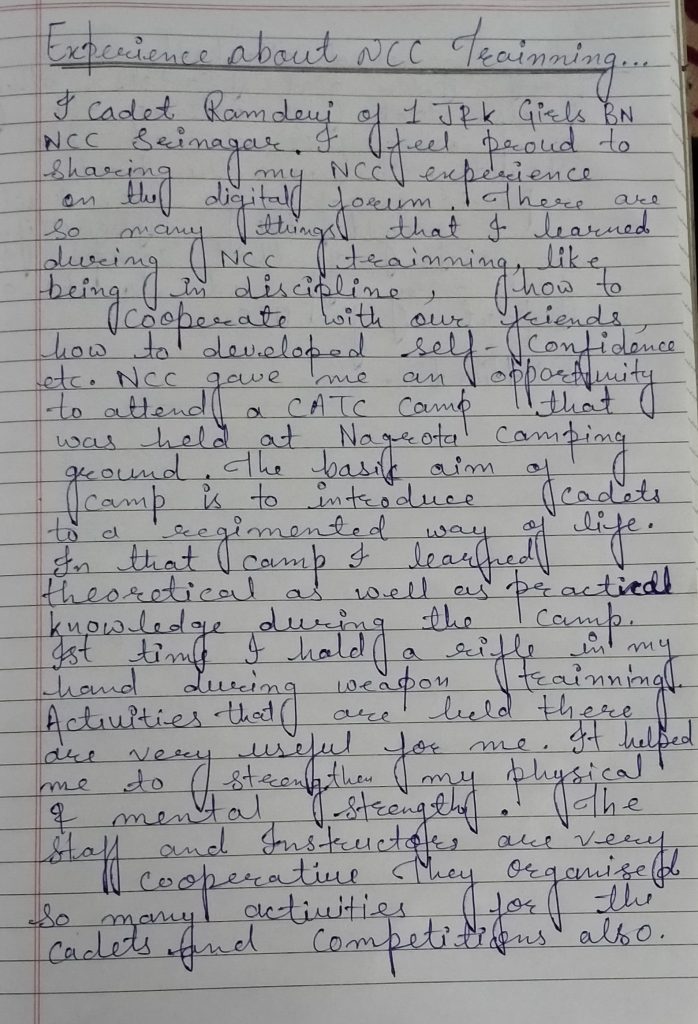 Experience about NCC Trainning...
I cadet Ramdeuj of 1 J&K Girls BN
NCC Srinagar. I feel proud to
sharing my NCC experience
on this digital forum. There are
so many things that I learned
during NCC trainning, like
being in discipline, how to
cooperate with our friends,
how to developed self-confidence
etc. NCC gave me an opportunity
to attend a CATC camp that
was held at Nagrota camping
ground. The basic aim of
camp is to introduce cadets
to a regimented way of life.
In that camp I learned
theoretical as well as practical
knowledge during the camp.
Ist time I hold a rifle in my
hand during weapon trainning.
Activities that are held there
are very useful for me. It helped
me to strengthen my physical
& mental strength. The
Staff and Instructors are very
cooperative They organised
so many activities for the
cadets and competitions also.